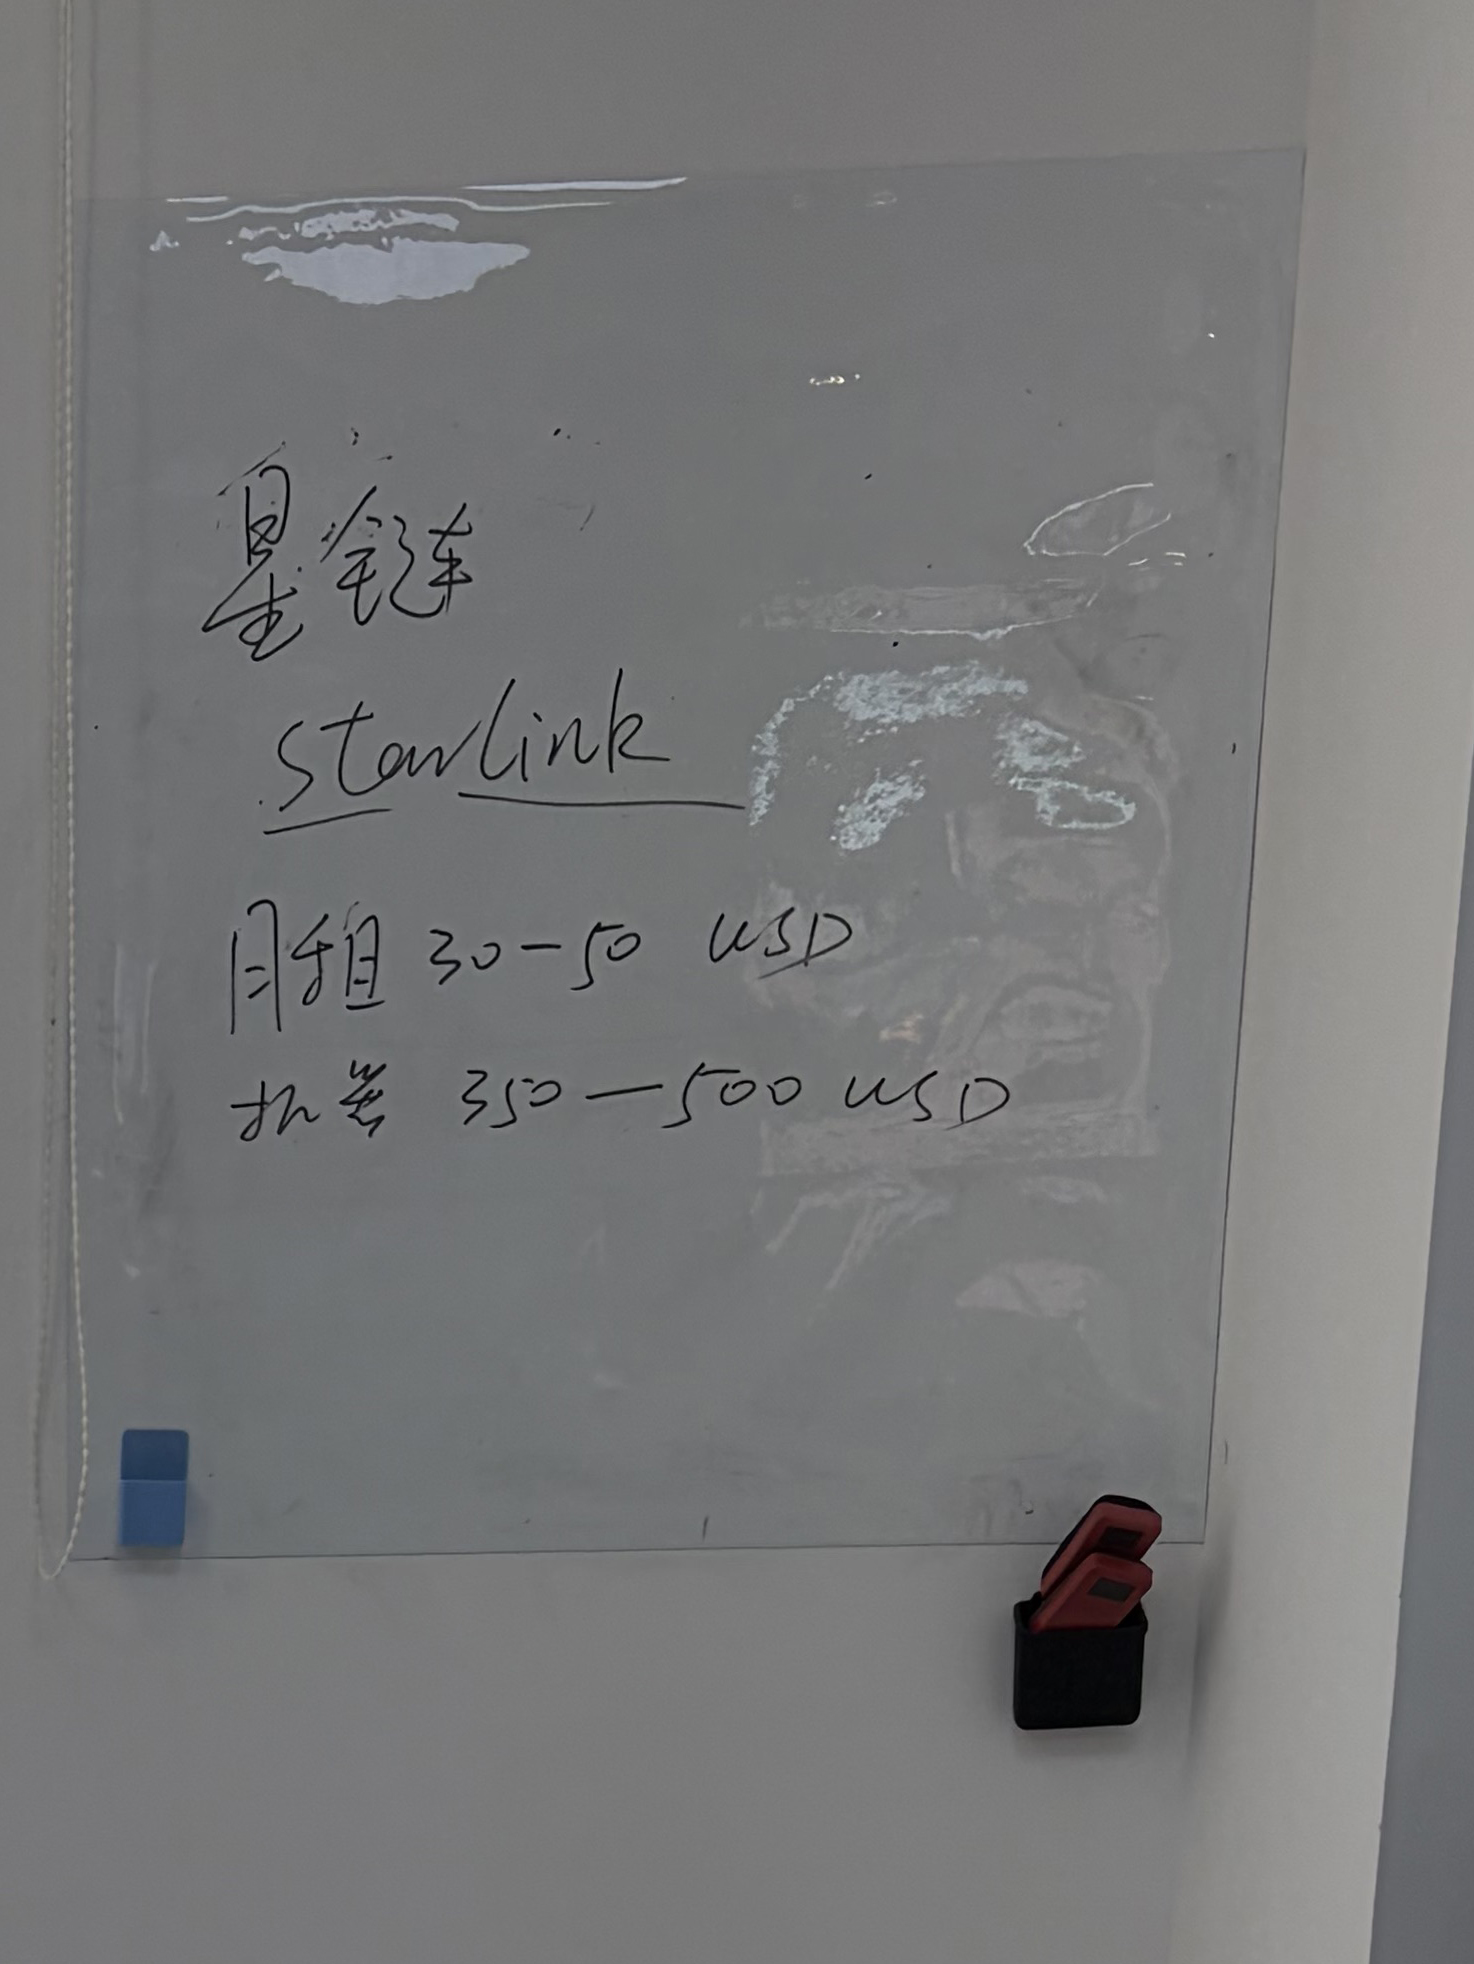 星链
starlink
月租 30-50 USD
机器 350-500 USD